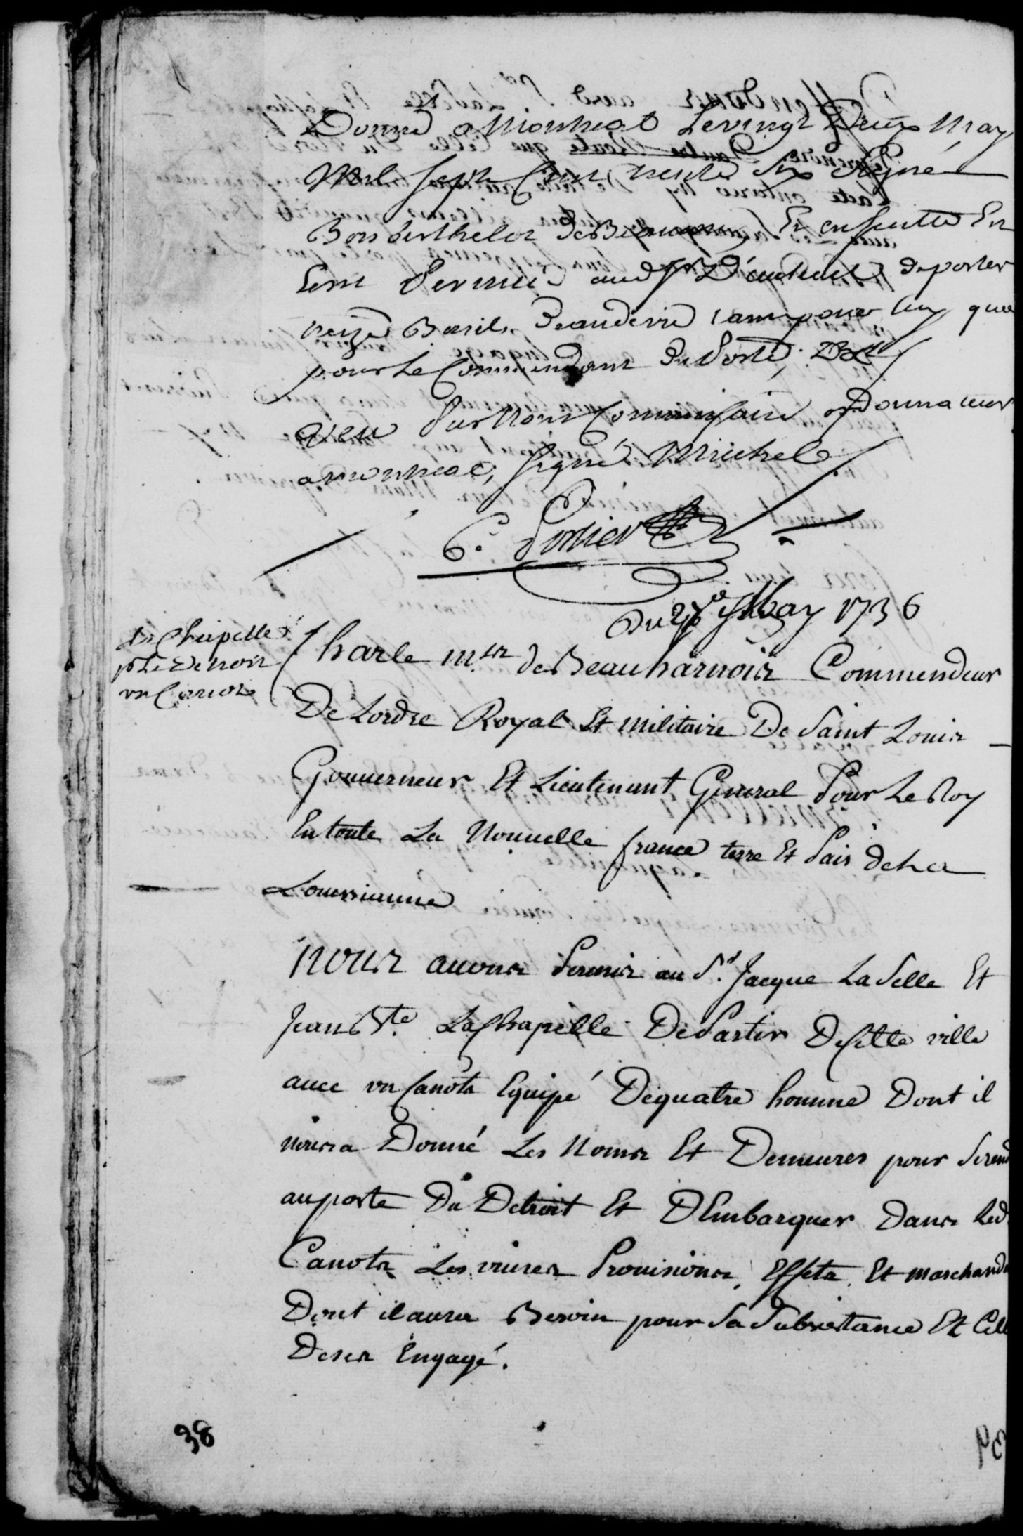 Donné a Monreal Levingt Deux May
Mil Sept Cent trente Six Signé
Boisberthelot DeBeaucour, Et ensuitte Est
Ecrit Permis aud Sr D'auteuil deporter
Seize Barils Deaudevie tant pour luy que
pour Le Commendant du Poste,
Veu Par Nous Commissaire ordonnateur
a monreal, Signé Michel
C. Porlier
Du 27e May 1736
La Chapelle
pr Le Detroit
un Canot
Charle mis deBeauharnois Commendeur
De Lordre Royal Et militaire De Saint Louis
Gouuerneur Et Lieutenant General Pour Le Roy
En toute La Nouuelle france terre Et Pais dela
Louissianne
Nous auons Permis au Sr. Jacque LaSelle Et
Jean Bte. LaChapelle DePartir DeCette ville
auec un Canots Equipé Dequatre homme Dont il
nous a Donné Les Noms Et Demeures pour Serend
auposte Du Detroit Et DEmbarquer Dans Led
Canots Les viures Prouisions, Effets Et marchand
Dont il aura Besoin pour Sa Subsistance Et Cell
Deses Engagé.
38